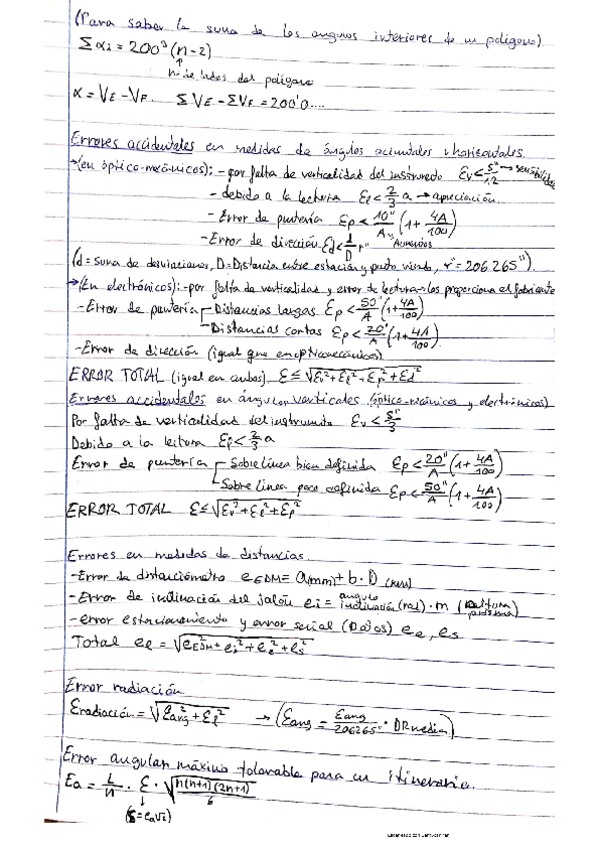 (Para saber la suma de los angulos interiores de un poligono)
Σαi = 200ᵍ (n-2)
nº de lados del poligono
α = VE - VF. ΣVE - ΣVF = 200'0....
Errores accidentales en medidas de ángulos acimutales u horizontales.
→(en óptico-mecánicos): - por falta de verticalidad del instrumento Ev < S''/12 → sensibilidad
- debido a la lectura El < 2/3 a → apreciación
- Error de puntería Ep < 10''/A (1 + 4A/100)
Aumentos
- Error de dirección Ed < d/D r''
(d = suma de desviaciones, D = Distancia entre estación y punto visado, r'' = 206.265'').
→(En electrónicos): - por falta de verticalidad y error de lectura - los proporciona el fabricante
- Error de puntería - Distancias largas Ep < 50''/A (1 + 4A/100)
- Distancias cortas Ep < 20''/A (1 + 4A/100)
- Error de dirección (igual que en opticomecánicos)
ERROR TOTAL (igual en ambos) E ≤ √Ev² + El² + Ep² + Ed²
Errores accidentales en ángulos verticales (óptico-mecánicos y electrónicos)
Por falta de verticalidad del instrumento Ev < S''/3
Debido a la lectura El < 2/3 a
Error de puntería - Sobre línea bien definida Ep < 20''/A (1 + 4A/100)
- Sobre línea poco definida Ep < 50''/A (1 + 4A/100)
ERROR TOTAL E ≤ √Ev² + El² + Ep²
Errores en medidas de distancias.
- Error de distanciómetro eEDM = a(mm) + b · D (km)
- Error de inclinación del jalón ei = angulo inclinación (rad) · m
- error estacionamiento y error señal (Datos) ee, es
Total el = √eEDM² + ei² + ee² + es²
Error radiación
Eradiación = √Eang² + El² → (Eang = Eang/206265'' · DRmedia)
Error angular máximo tolerable para un itinerario.
Ea = L/n · E · √n(n+1)(2n+1)/6
(E = ea√2)